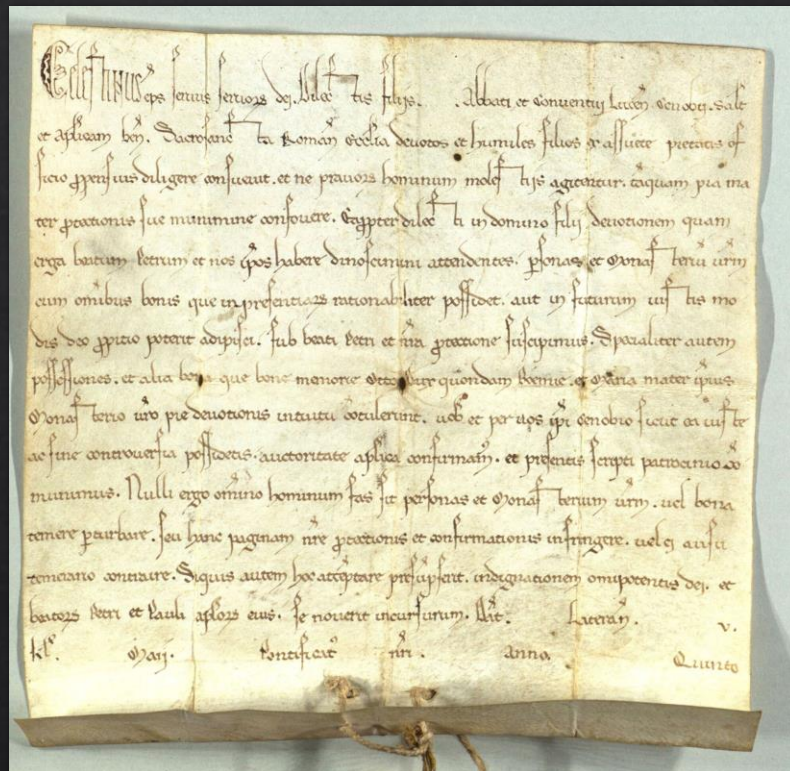 Celestinus eps servus servorꝝ dei. Dilectis filijs. Abbati et Conventui Lucen̄ Cenobij. Salt̄
et aplicam ben̄. Sacrosancta Roman̄ Ecclia devotos et humiles filios ex assuete pietatis of
ficio ꝓpensius diligere consuevit. et ne pravorꝝ hominum molestijs agitentur. tāquam pia ma
ter ꝓtectionis sue munimine confovere. Eaꝓpter dilecti in domino filij devotionem quam
erga beatum Petrum et nos ip̄os habere dinoscimini attendentes. ꝑsonas et Monasteriū vr̄m
cum om̄ibus bonis que inpresentiarꝝ rationabiliter possidet. aut in futurum iustis mo
dis deo ꝓpitio poterit adipisci. sub beati Petri et nr̄a ꝓtectione suscipimus. Specialiter autem
possessiones. et alia bona que bone memorie Otto Dux quondam Boemie. et Maria mater ip̄ius
Monasterio vr̄o pie devotionis intuitu cōtulerunt. vob̄ et per vos ip̄i Cenobio sicut ea iuste
ac sine controversia possidetis. auctoritate aplica confirmam̄. et presentis scripti patrocinio cō
munimus. Nulli ergo om̄ino hominum fas sit personas et Monasterium vr̄m. vel bona
temere ꝑturbare. seu hanc paginam nr̄e ꝓtectionis et confirmationis infringere. vel ei ausu
temerario contraire. Siquis autem hoc attēptare presūpserit. indignationem omipotentis dei. et
beatorꝝ Petri et Pauli aplorꝝ eius. se noverit incursurum. Dat̄. Lateran̄. v.
kl̄. Maij. Pontificat̄ nr̄i. Anno. Quinto